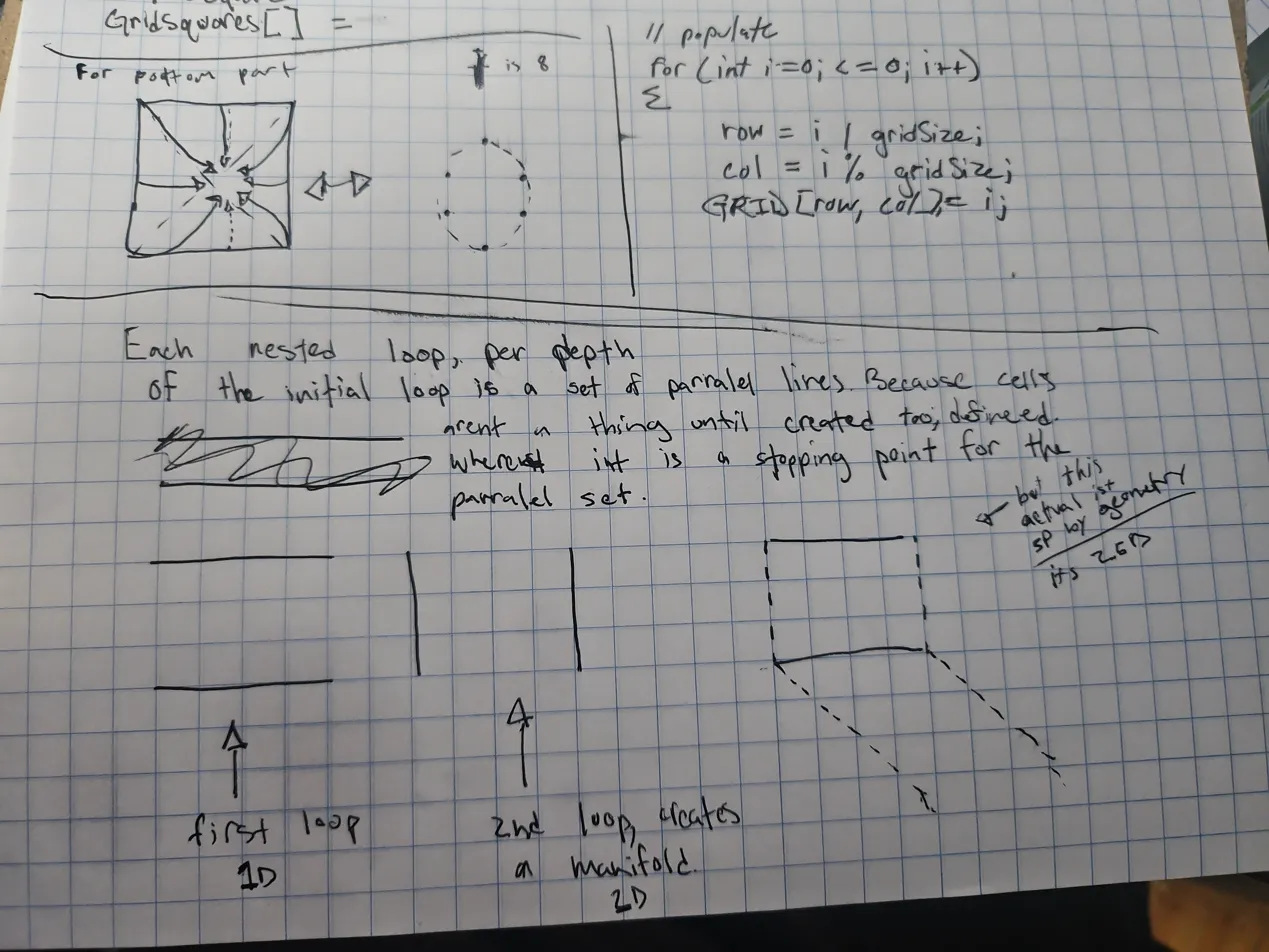 GridSquares[ ] =
For bottom part
is 8
// populate
for (int i=0; <=0; i++)
{
row = i / gridSize;
col = i % gridSize;
GRID[row, col] = i;
Each nested loop, per depth
of the initial loop is a set of parralel lines. Because cells
arent a thing until created too, defineed.
where int is a stopping point for the
parralel set.
but this
actual ist
sp by geometry
its 2.5D
first loop
1D
2nd loop, creates
a manifold.
2D